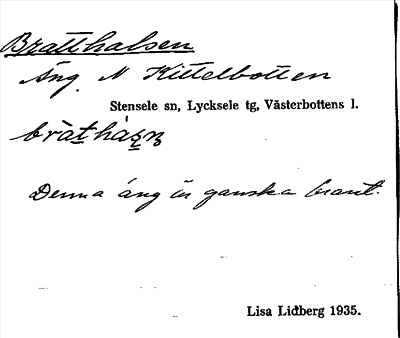 Bratthalsen
Äng N Kittelbotten
Stensele sn, Lycksele tg, Västerbottens l.
Denna äng är ganska brant.
Lisa Lidberg 1935.